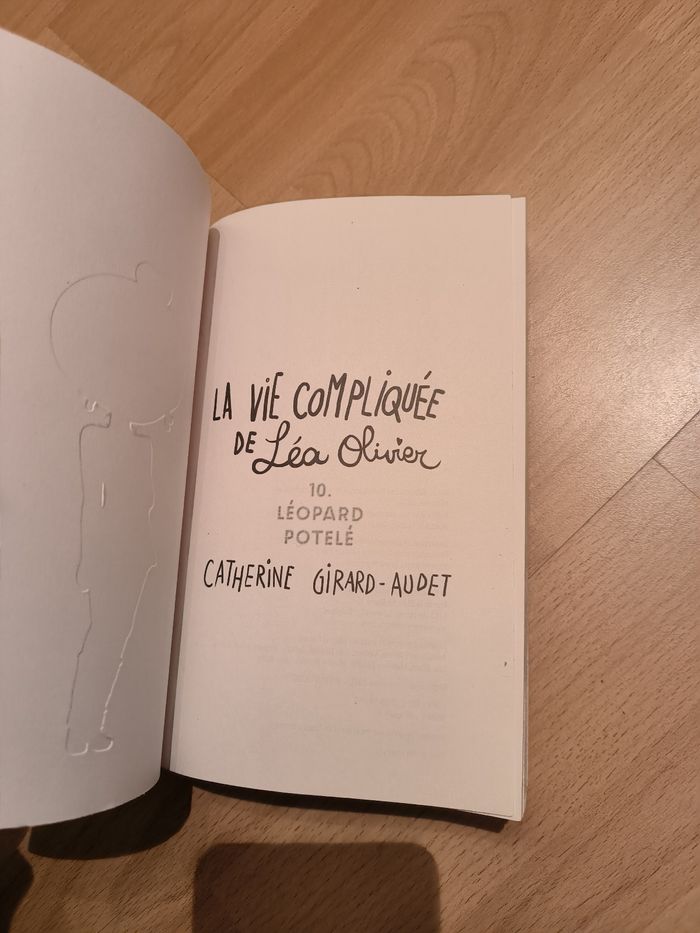 LA ViE COMPLiQUÉE
DE Léa Olivier
10.
LÉOPARD
POTELÉ
CATHERiNE GiRARD-AUDET